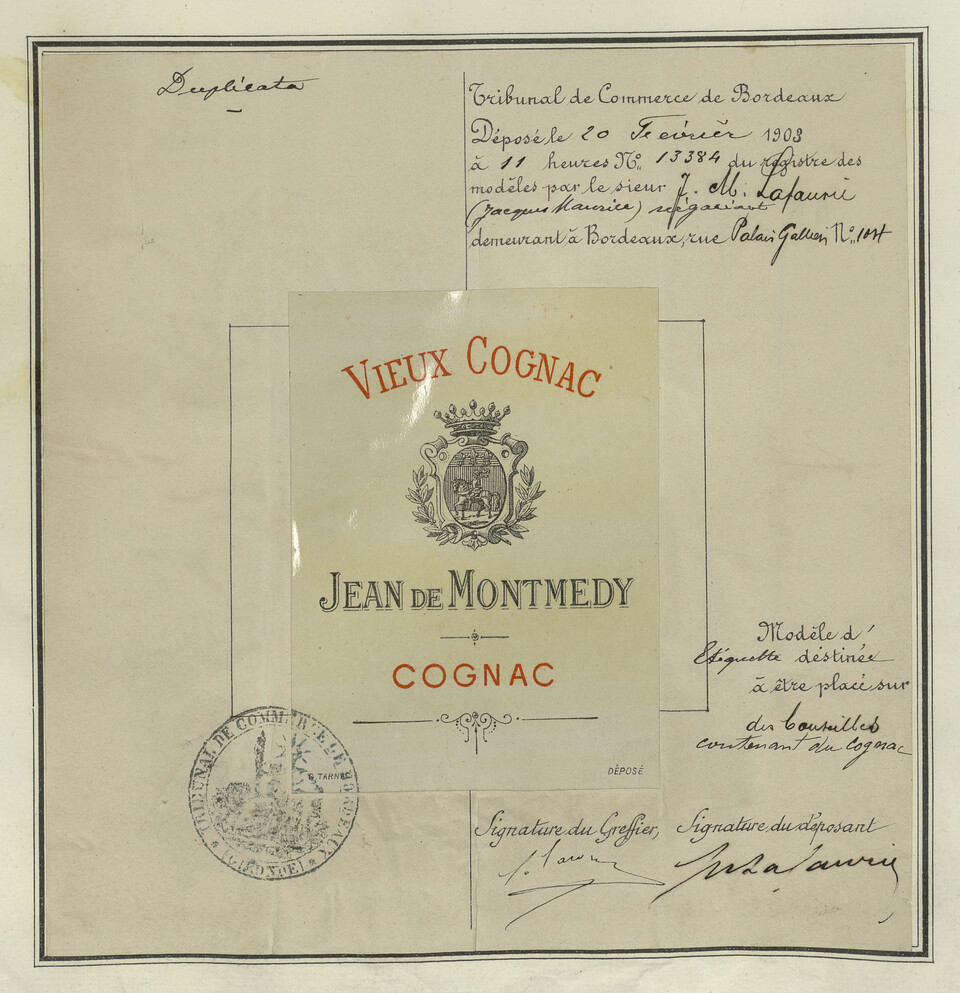 Duplicata
Tribunal de Commerce de Bordeaux
Déposé le 20 Février 1903
à 11 heures No. 13384 du registre des
modèles par le sieur J. M. Lafaurie
(Jacques Maurice) négociant
demeurant à Bordeaux, rue Palais Gallien No. 104
VIEUX COGNAC
JEAN DE MONTMEDY
COGNAC
Modèle d'
Etiquette déstinée
à être placé sur
des bouteilles
contenant du Cognac
TRIBUNAL DE COMMERCE DE BORDEAUX
(GIRONDE)
G. TARNEL
DÉPOSÉ
Signature du Greffier, Signature du déposant
JM Lafaurie